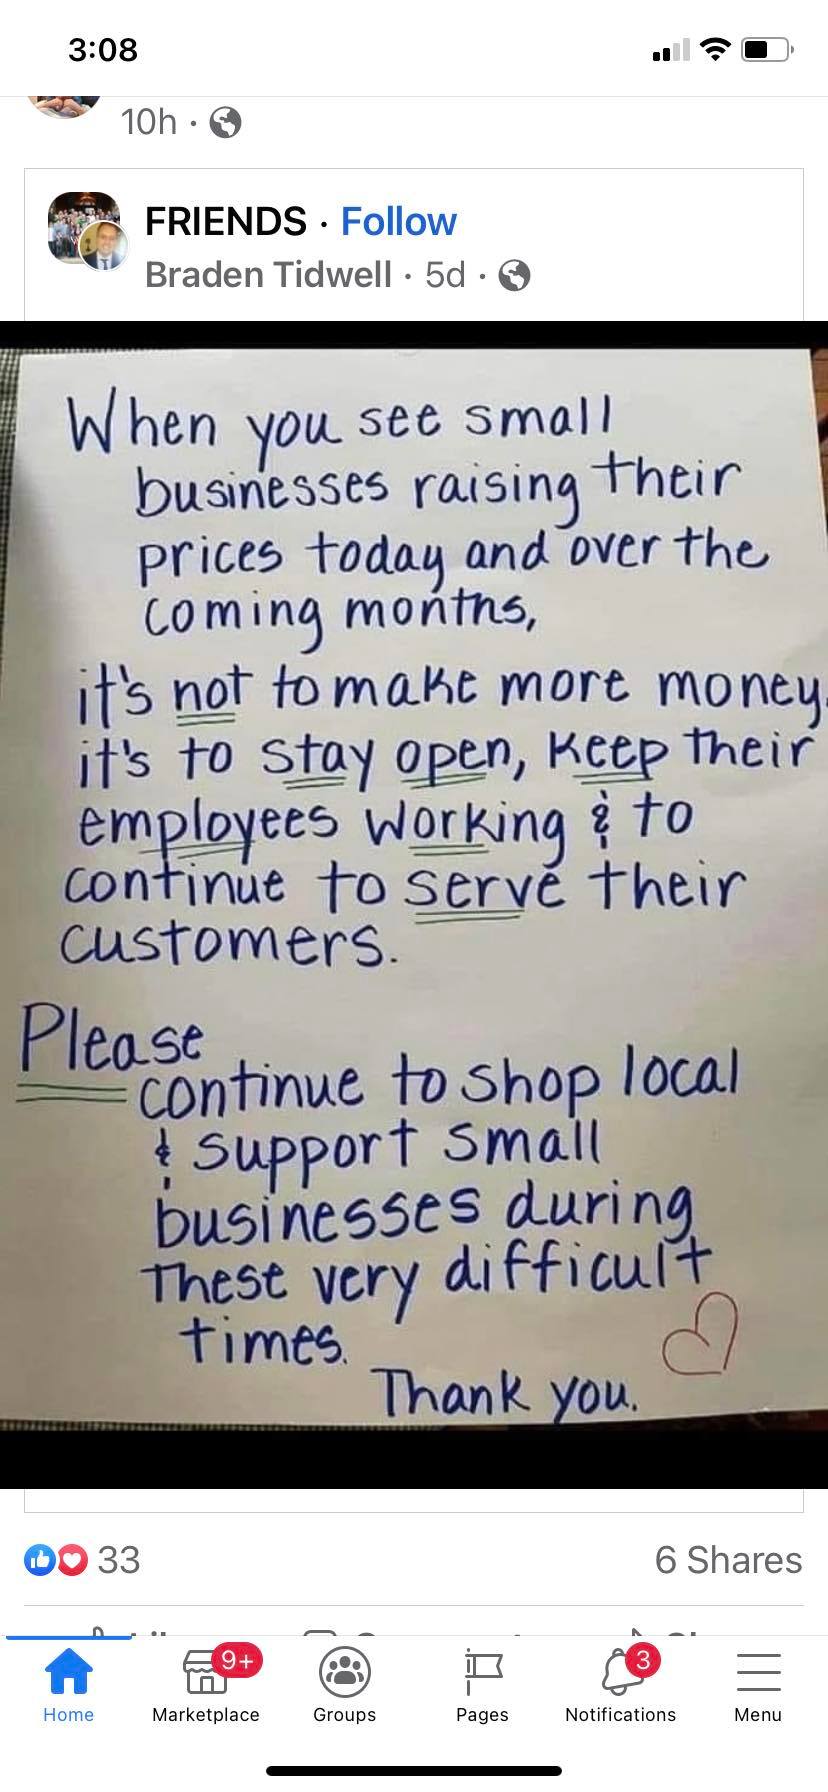 3:08
10h ·
FRIENDS · Follow
Braden Tidwell · 5d ·
When you see small
businesses raising their
prices today and over the
coming months,
it's not to make more money.
it's to stay open, keep their
employees working & to
continue to serve their
customers.
Please
continue to shop local
& support small
businesses during
these very difficult
times.
Thank you.
33
6 Shares
9+
3
Home
Marketplace
Groups
Pages
Notifications
Menu